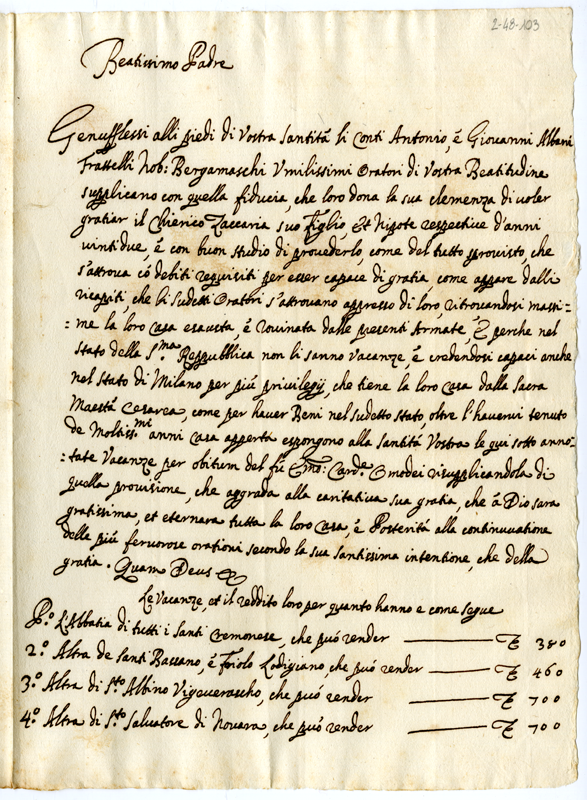 2-48-103
Beatissimo Padre
Genufflessi alli piedi di Vostra Santità li Conti Antonio, è Giovanni Albani
Frattelli Nob: Bergamaschi Vmilissimi Oratori di Vostra Beatitudine
supplicano con quella fiducia, che loro dona la sua clemenza di voler
gratiar il Chierico Zaccaria suo Figlio, et Nipote respectivè d'anni
vintidue, è con buon studio di provederlo, come del tutto sprovisto, che
s'attrova cõ debiti requisiti per esser capace di gratia, come appare dalli
ricapiti, che li sudetti Oratori s'attrovano appresso di loro, ritrovandosi massi=
=me la loro casa esausta, è rovinata dalle presenti Armate, E perche nel
stato della S.ma Reppubblica non li sanno vacanze, è credendosi capaci anche
nel stato di Milano per più privilegij, che tiene la loro casa dalla Sacra
Maestà Cesarea, come per haver Beni nel sudetto stato, oltre l'havervi tenuto
de Moltiss.mi anni casa apperta espongono alla Santità Vostra le qui sotto anno=
=tate Vacanze per obitum del fù Emo: Card.e Omodei risupplicandola di
quella provisione, che aggrada alla caritativa sua gratia, che à Dio sara
gratissima, et eternara tutta la loro casa, è Posterità alla continuatione
delle più fervorose orationi secondo la sua santissima intentione, che della
gratia. Quam Deus &c
Le Vacanze, et il reddito loro per quanto hanno e come segue
P.o L'Abbatia di tutti i santi Cremonese, che può render 380
2.o Altra de Santi Bassano, è Lodigiano, che può render 460
3.o Altra di S.to Albino Vigevenasco, che può render 700
4.o Altra di S.to Salvatore di Novara, che può render 700